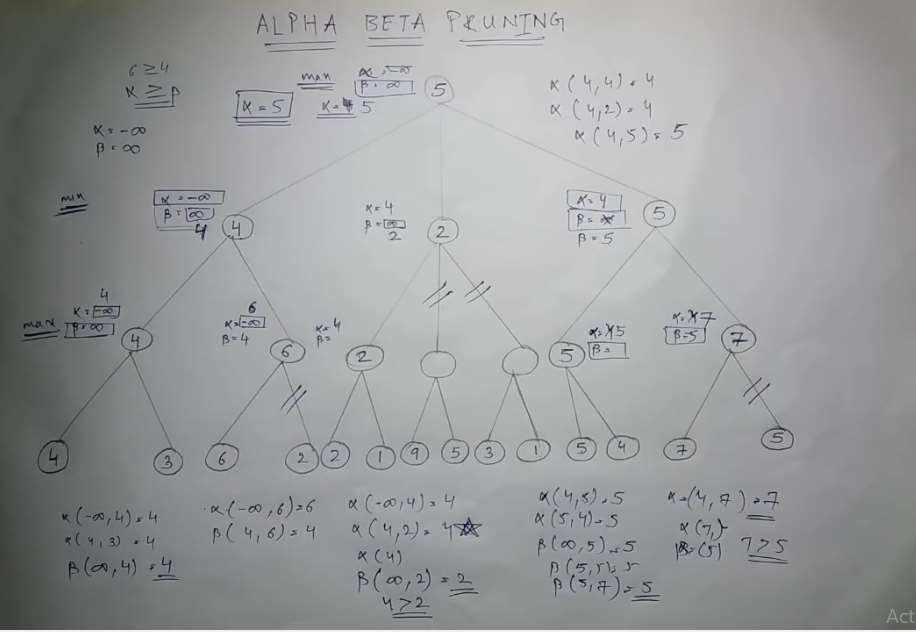 ALPHA BETA PRUNING
6 ≥ 4
α ≥ β
α = -∞
β = ∞
max
α = -∞
β = ∞
5
α = 5
α = 4 5
α(4,4) = 4
α(4,2) = 4
α(4,5) = 5
min
α = -∞
β = ∞
4
4
α = 4
β = ∞
2
2
α = 4
β = ∞
β = 5
5
max
4
α = -∞
β = ∞
4
6
α = -∞
β = 4
6
α = 4
β =
2
α = 4 5
β =
5
α = 4 7
β = 5
7
4
3
6
2
2
1
9
5
3
1
5
4
7
5
α(-∞,4) = 4
α(4,3) = 4
β(∞,4) = 4
α(-∞,6) = 6
β(4,6) = 4
α(-∞,4) = 4
α(4,2) = 4
α(4)
β(∞,2) = 2
4 > 2
α(4,5) = 5
α(5,4) = 5
β(∞,5) = 5
β(5,5) = 5
β(5,7) = 5
α = (4,7) = 7
α(7,)
β = (5)
7 > 5
Act